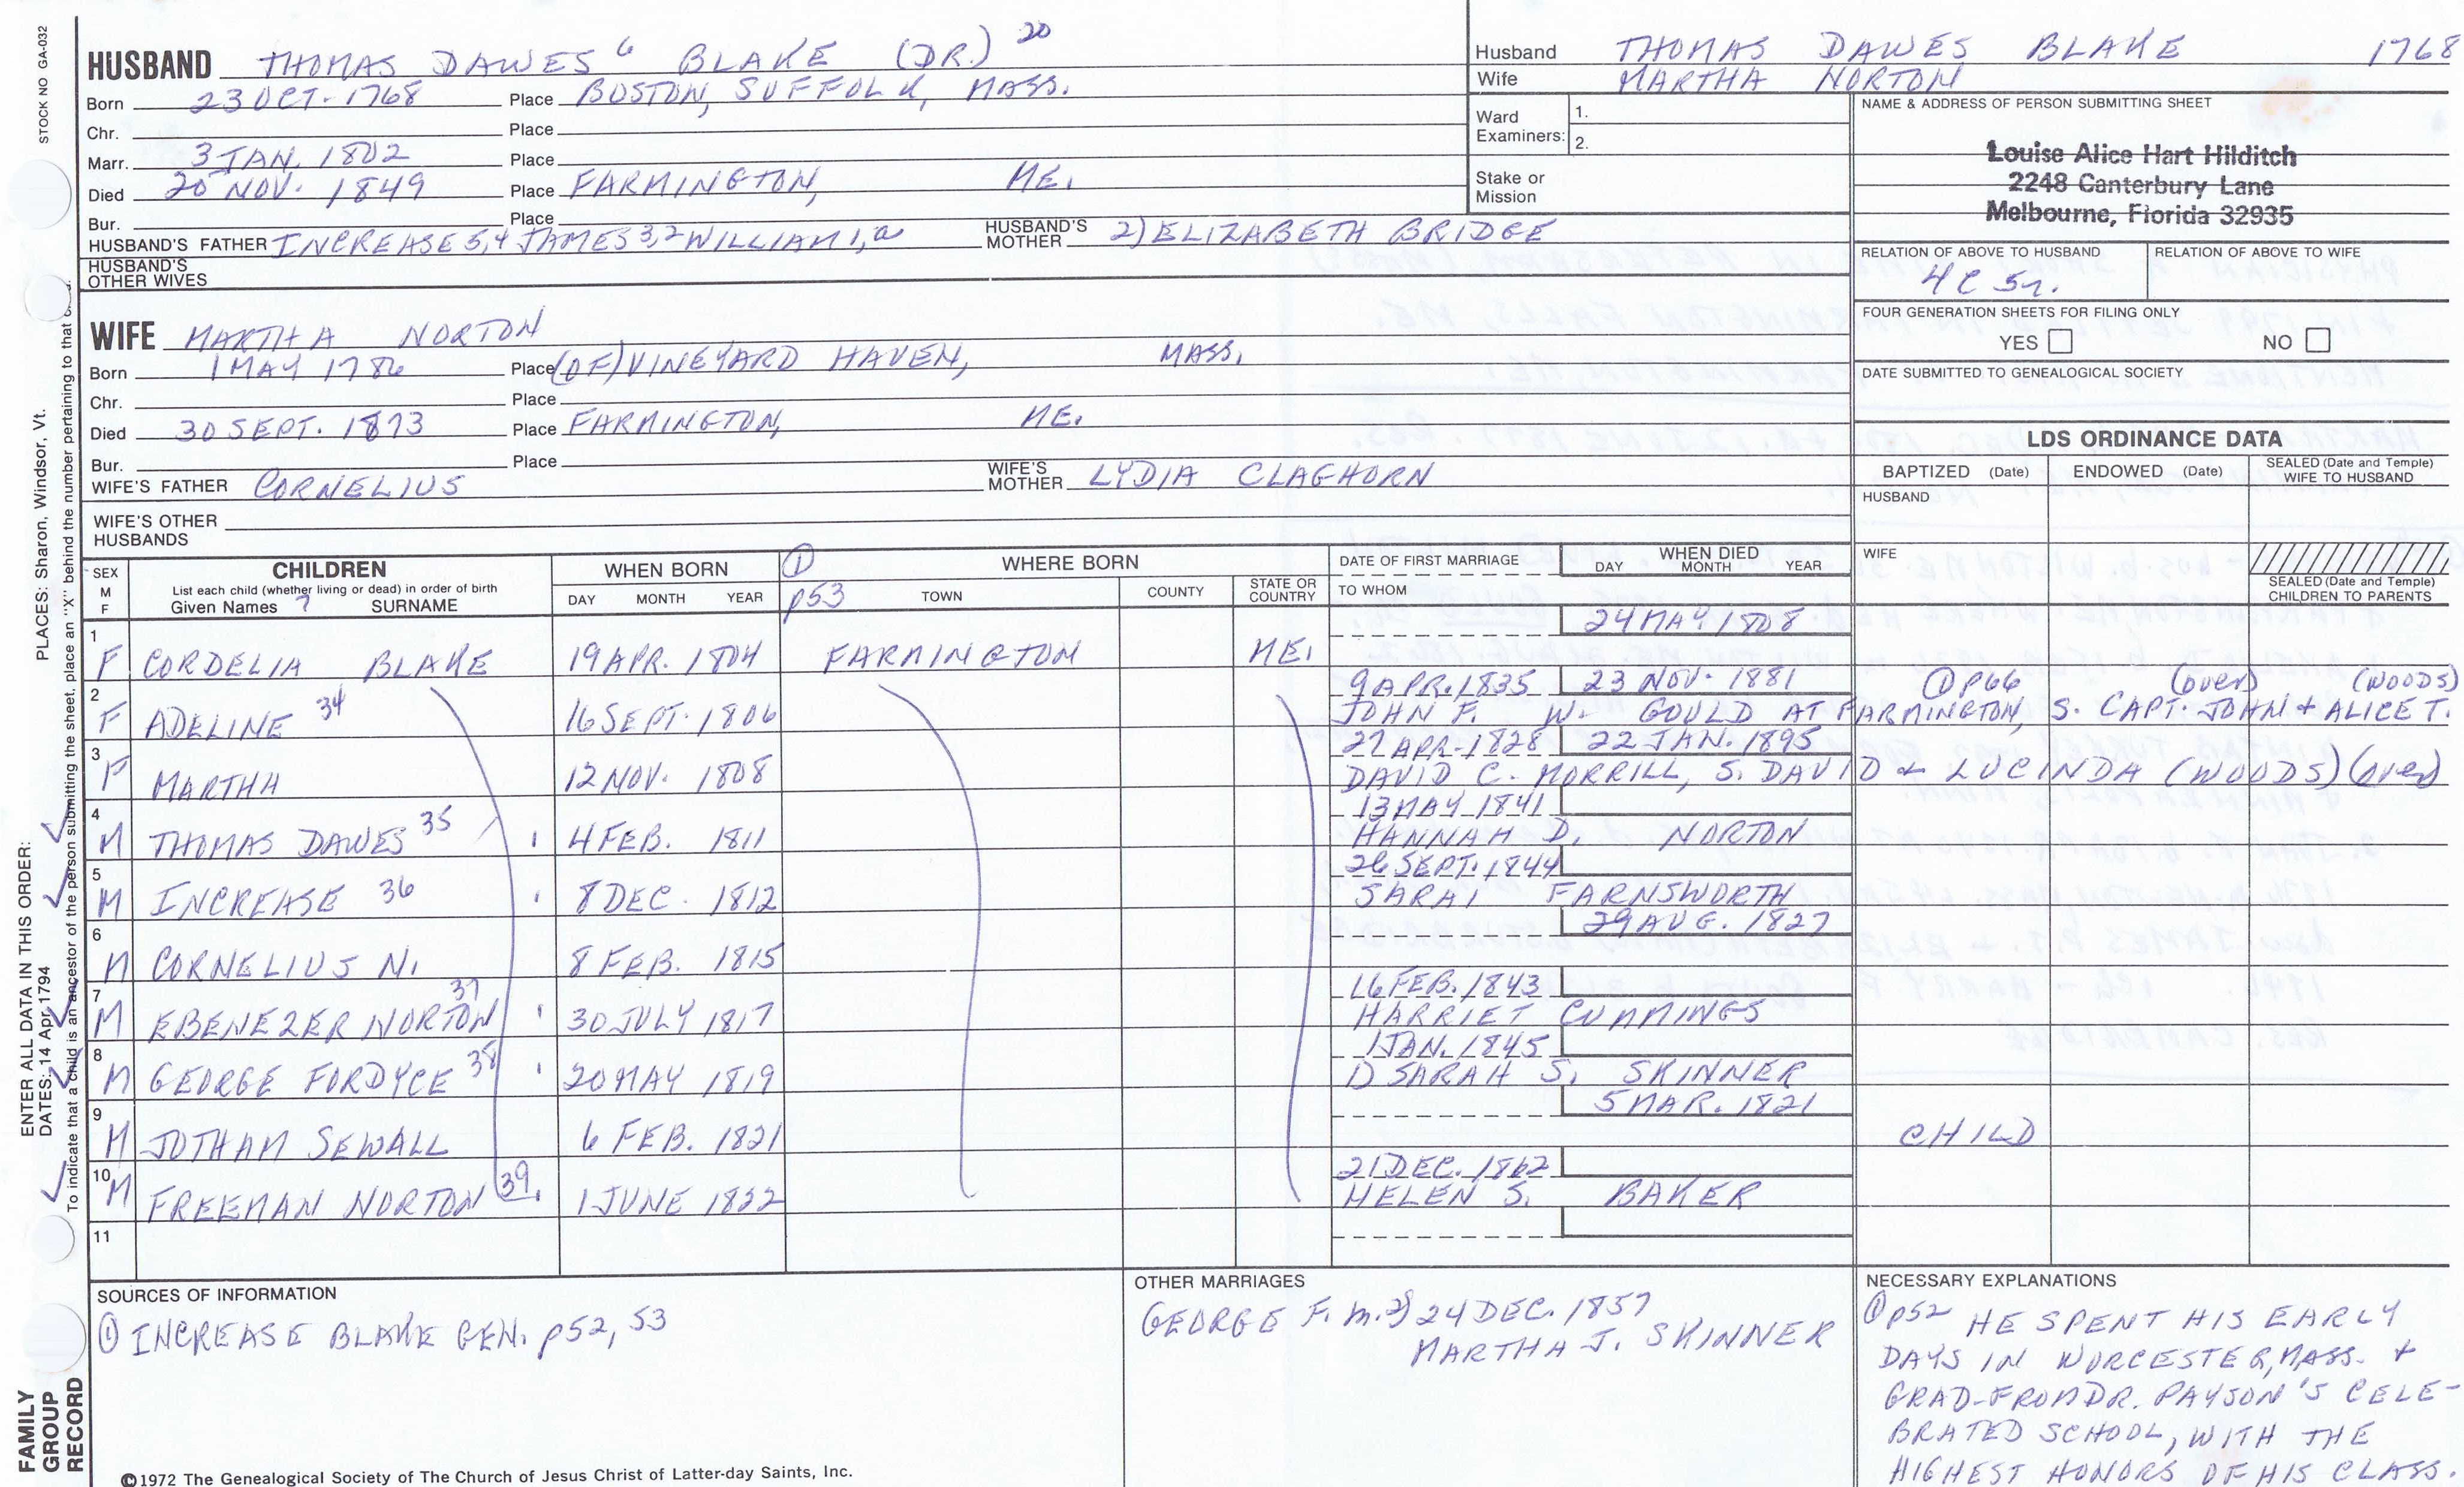 STOCK NO GA-032
PLACES: Sharon, Windsor, Vt.
ENTER ALL DATA IN THIS ORDER:
DATES: 14 Apr 1794
To indicate that a child is an ancestor of the person submitting the sheet, place an "X" behind the number pertaining to that
FAMILY GROUP RECORD
HUSBAND THOMAS DAWES 6 BLAKE (DR.) 20
Born 23 OCT. 1768 Place BOSTON, SUFFOLK, MASS.
Chr. Place
Marr. 3 JAN. 1802 Place
Died 20 NOV. 1849 Place FARMINGTON, ME.
Bur. Place
HUSBAND'S FATHER INCREASE 5,4 JAMES 3,2 WILLIAM 1,a HUSBAND'S MOTHER 2) ELIZABETH BRIDGE
HUSBAND'S OTHER WIVES
WIFE MARTHA NORTON
Born 1 MAY 1786 Place (OF) VINEYARD HAVEN, MASS.
Chr. Place
Died 30 SEPT. 1873 Place FARMINGTON, ME.
Bur. Place
WIFE'S FATHER CORNELIUS WIFE'S MOTHER LYDIA CLAGHORN
WIFE'S OTHER HUSBANDS
Husband THOMAS DAWES BLAKE 1768
Wife MARTHA NORTON
Ward Examiners: 1. 2.
Stake or Mission
NAME & ADDRESS OF PERSON SUBMITTING SHEET
Louise Alice Hart Hilditch
2248 Canterbury Lane
Melbourne, Florida 32935
RELATION OF ABOVE TO HUSBAND RELATION OF ABOVE TO WIFE
4C 5r.
FOUR GENERATION SHEETS FOR FILING ONLY
YES NO
DATE SUBMITTED TO GENEALOGICAL SOCIETY
LDS ORDINANCE DATA
BAPTIZED (Date) ENDOWED (Date) SEALED (Date and Temple) WIFE TO HUSBAND
HUSBAND
WIFE
SEALED (Date and Temple) CHILDREN TO PARENTS
SEX M F
CHILDREN
List each child (whether living or dead) in order of birth
Given Names 7 SURNAME
WHEN BORN
DAY MONTH YEAR
① p53
WHERE BORN
TOWN COUNTY STATE OR COUNTRY
DATE OF FIRST MARRIAGE
TO WHOM
WHEN DIED
DAY MONTH YEAR
24 MAY 1808
1 F CORDELIA BLAKE 19 APR. 1804 FARMINGTON ME.
9 APR. 1835 23 NOV. 1881 ① p66 (over) (WOODS)
2 F ADELINE 34 16 SEPT. 1806 JOHN F. W. GOULD AT FARMINGTON, S. CAPT. JOHN + ALICE T.
27 APR. 1828 22 JAN. 1895
3 F MARTHA 12 NOV. 1808 DAVID C. MORRILL, S. DAVID + LUCINDA (WOODS) (over)
13 MAY 1841
4 M THOMAS DAWES 35 4 FEB. 1811 HANNAH D. NORTON
26 SEPT. 1844
5 M INCREASE 36 8 DEC. 1812 SARAI FARNSWORTH
29 AUG. 1827
6 M CORNELIUS N. 8 FEB. 1815
16 FEB. 1843
7 M EBENEZER NORTON 37 30 JULY 1817 HARRIET CUMMINGS
1 JAN. 1845
8 M GEORGE FORDYCE 38 20 MAY 1819 1) SARAH S. SKINNER
5 MAR. 1821
9 M JOTHAM SEWALL 6 FEB. 1821 CHILD
21 DEC. 1862
10 M FREEMAN NORTON 39. 1 JUNE 1822 HELEN S. BAKER
11
SOURCES OF INFORMATION
① INCREASE BLAKE GEN. p52, 53
OTHER MARRIAGES
GEORGE F. m. 2) 24 DEC. 1857
MARTHA J. SKINNER
NECESSARY EXPLANATIONS
① p52 HE SPENT HIS EARLY
DAYS IN WORCESTER, MASS. +
GRAD-FROM DR. PAYSON'S CELE-
BRATED SCHOOL, WITH THE
HIGHEST HONORS OF HIS CLASS.
©1972 The Genealogical Society of The Church of Jesus Christ of Latter-day Saints, Inc.